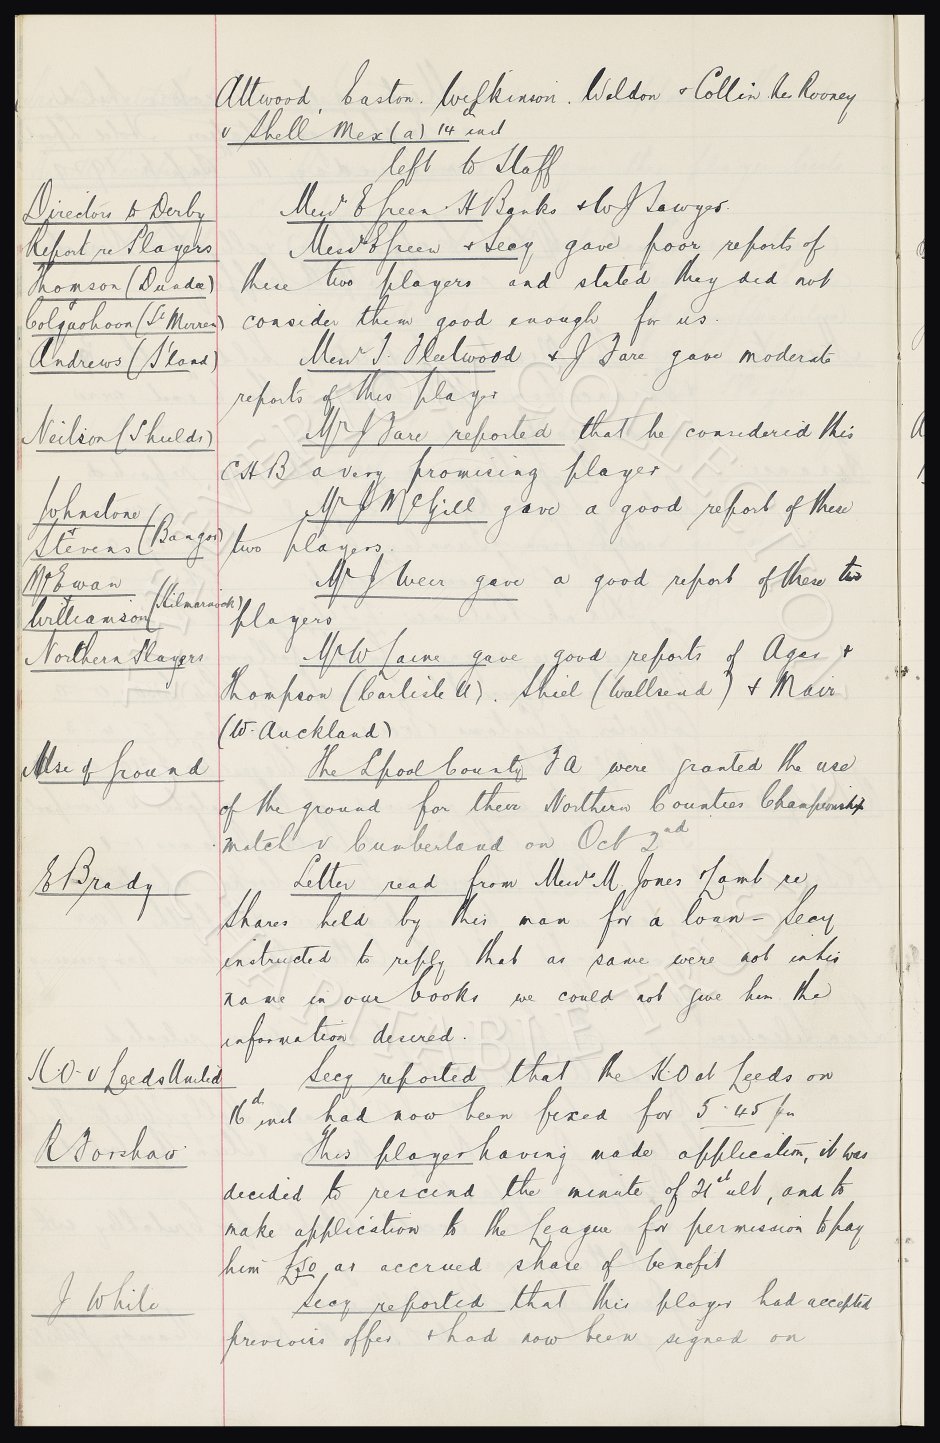 Attwood, Easton. Wilkinson. Weldon & Collin. Res Rooney
v Shell Mex (a) 14th inst
left to Staff
Directors to Derby Messrs E Green. H Banks & W J Sawyer.
Report re Players Messrs E Green & Secy gave poor reports of
Thomson (Dundee) these two players and stated they did not
Colquohoon (St Mirren) consider them good enough for us.
Andrews (S'land) Messrs T. Fleetwood & J Fare gave moderate
reports of this player
Neilson (Shields) Mr J Fare reported that he considered this
CHB a very promising player
Johnstone Mr J McGill gave a good report of these
& Stevens (Bangor) two players.
McEwan Mr J Weir gave a good report of these two
& Williamson (Kilmarnock) players
Northern Players Mr W Caine gave good reports of Agar &
Thompson (Carlisle U). Shiel (Wallsend) & Mair
(W. Auckland)
Use of Ground The Lpool County FA were granted the use
of the ground for their Northern Counties Championship
match v Cumberland on Oct 2nd
E Brady Letter read from Messrs M Jones & Lamb re
shares held by this man for a loan - Secy
instructed to reply that as same were not in his
name in our books we could not give him the
information desired.
K.O. v Leeds United Secy reported that the K.O at Leeds on
16th inst had now been fixed for 5.45 pm
R Forshaw This player having made application, it was
decided to rescind the minute of 31st ult, and to
make application to the League for permission to pay
him £50 as accrued share of benefit
J White Secy reported that this player had accepted
previous offer & had now been signed on